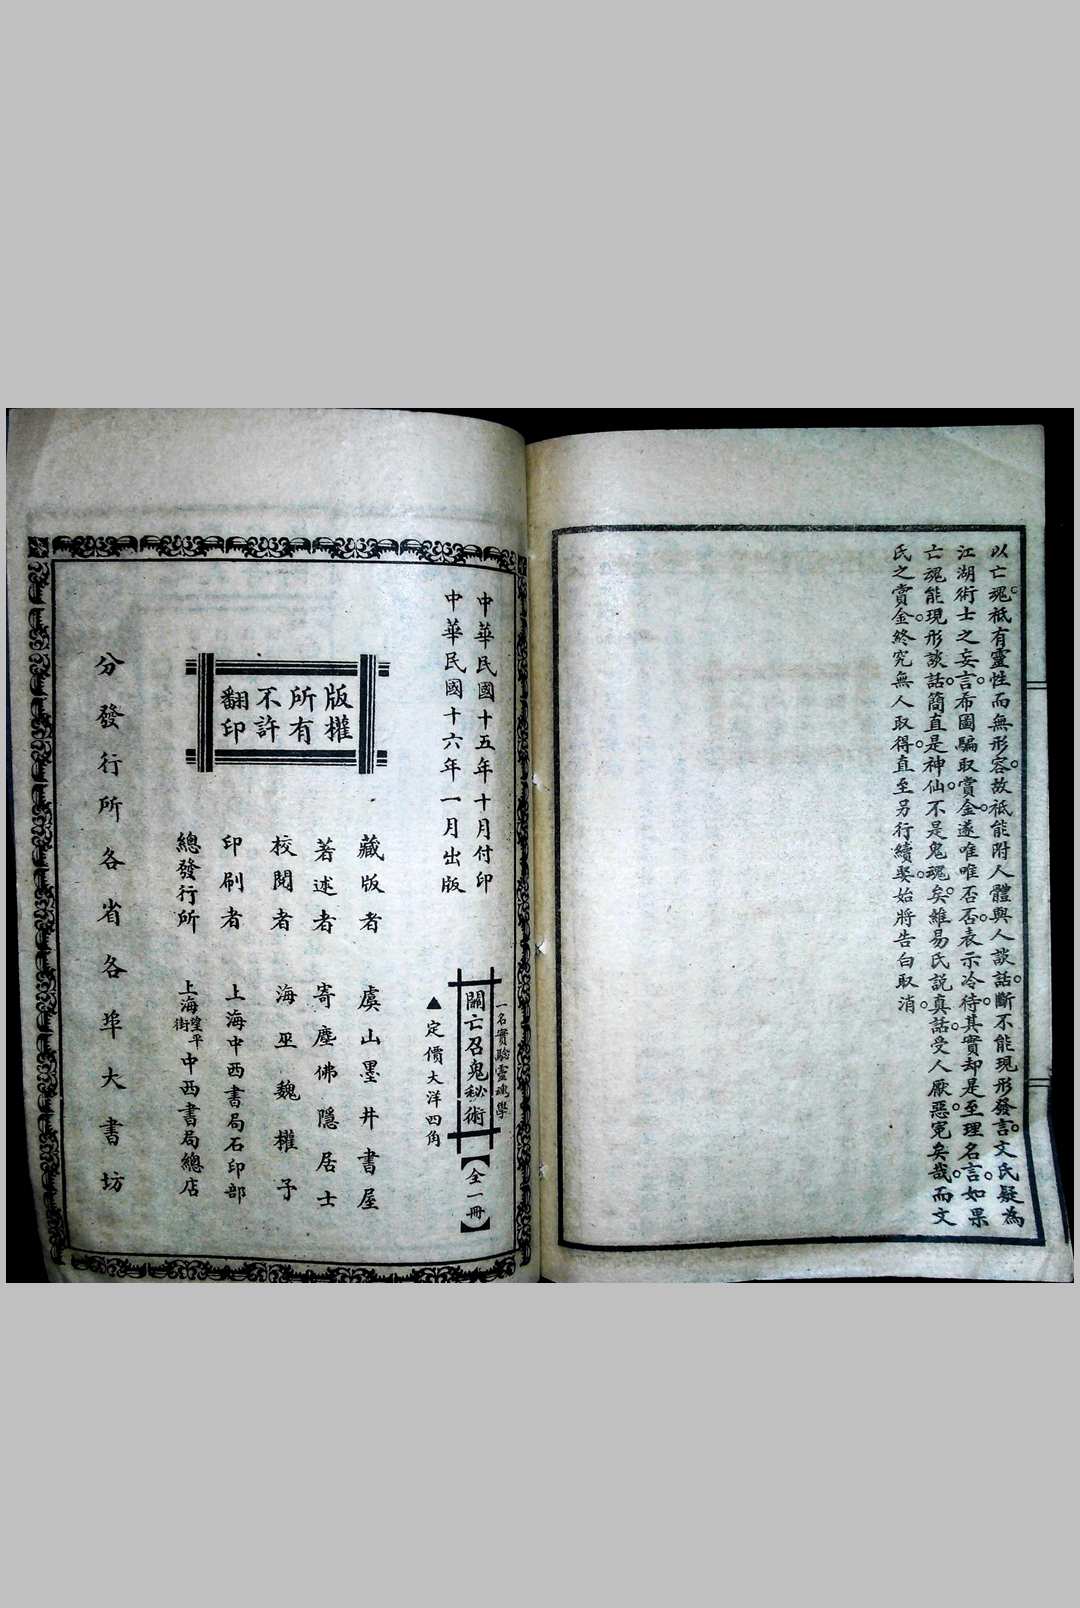 以亡魂。祇有靈性而無形容。故祇能附人體與人談話。斷不能現形發言。文氏疑為
江湖術士之妄言。希圖騙取賞金。遂唯唯否否。表示冷待。其實却是至理名言。如果
亡魂能現形談話。簡直是神仙。不是鬼魂矣。雖易氏說真話。受人厭惡。冤矣哉。而文
氏之賞金。終究無人取得。直至另行續娶。始將告白取消。
中華民國十五年十月付印
中華民國十六年一月出版
一名實騐靈魂學
關亡召鬼秘術
【全一冊】
▲定價大洋四角
版權所有不許翻印
藏版者 虞山墨井書屋
著述者 寄塵佛隱居士
校閱者 海巫魏權予
印刷者 上海中西書局石印部
總發行所 上海望平街中西書局總店
分發行所各省各埠大書坊